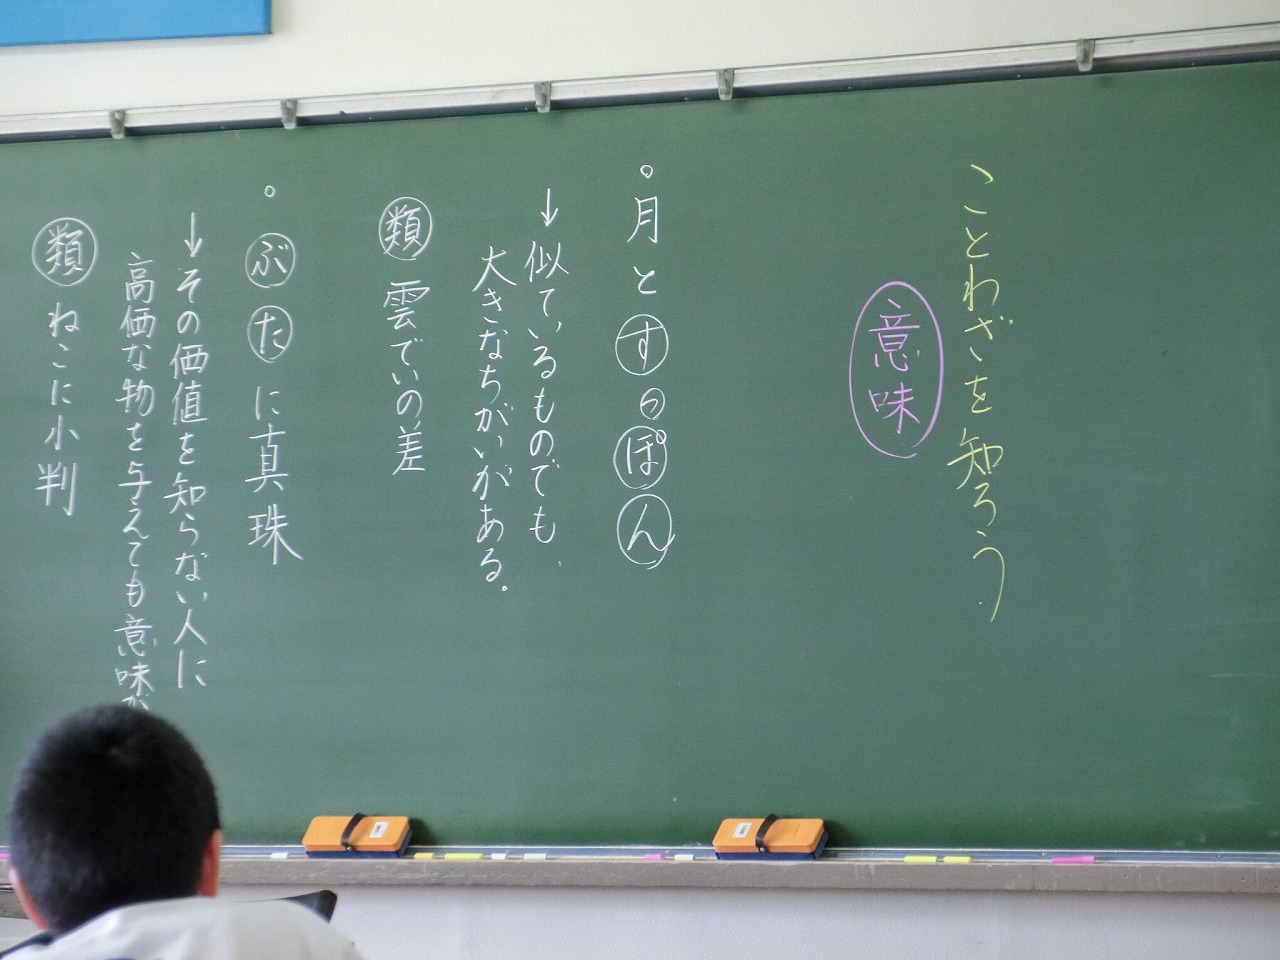 ことわざを知ろう
意味
。月とすっぽん
↓似ているものでも、
大きなちがいがある。
類 雲でいの差
。ぶたに真珠
↓その価値を知らない人に
高価な物を与えても意味が
類 ねこに小判